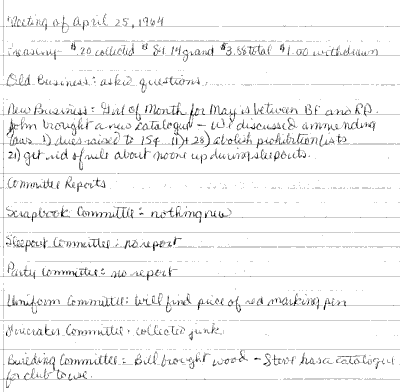 Meeting of April 25, 1964
Treasury - $.20 collected $ 84.14 grand $3.58 total $1.00 withdrawn
Old Business: asked questions.
New Business: Girl of Month for May is between BF and RD.
John brought a new catalogue - We discussed ammending
laws 1) dues raised to 15¢ (1)+25) abolish prohibition lists
21) get rid of rule about no one up during sleepouts.
Committee Reports
Scrapbook Committee: nothing new
Sleepout Committee: no report
Party committee: no report
Uniform Committee: will find price of red marking pen
Committee: collected junk
Building Committee: Bill brought wood - Steve has a catalogue
for club to use.